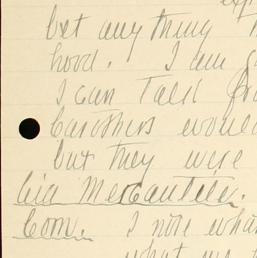 bet any thing
hood. I am
I can Talk
Carothers would
but they were
Mercantile.
Com. I note what
what